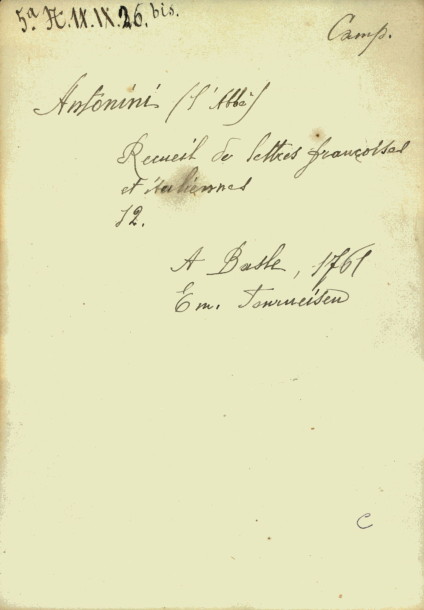 5ª A.IX.IX.26.bis.
Camp.
Antonini (l'Abbé)
Recueil de lettres françoises
et italiennes
12.
A Basle, 1761
Em. Tourneisen
C